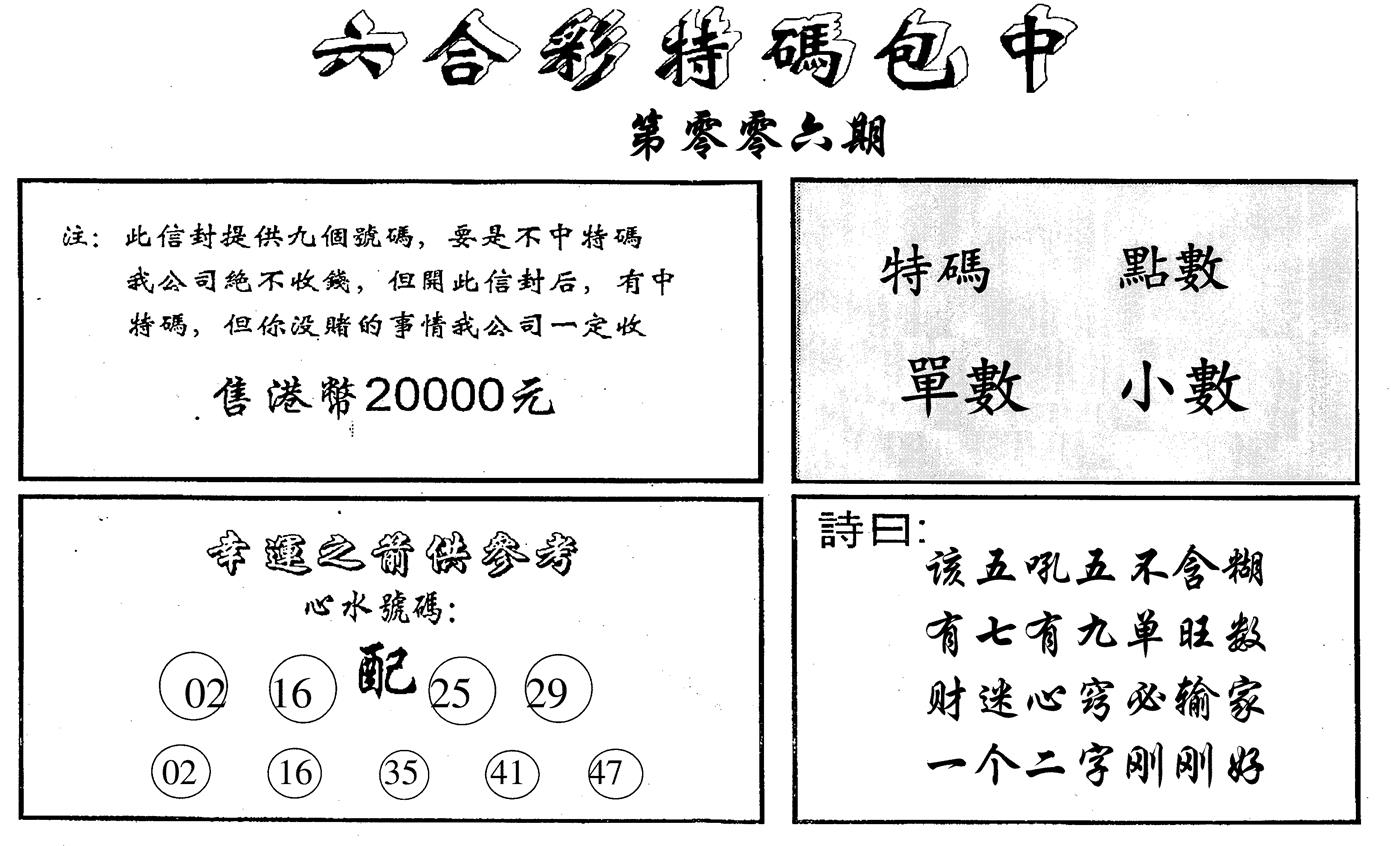 六合彩特碼包中
第零零六期
注：此信封提供九個號碼，要是不中特碼
我公司絕不收錢，但開此信封后，有中
特碼，但你没賭的事情我公司一定收
售港幣20000元
特碼 點數
單數 小數
幸運之箭供參考
心水號碼：
02 16 配 25 29
02 16 35 41 47
詩曰：
该五吼五不含糊
有七有九单旺数
财迷心窍必输家
一个二字刚刚好